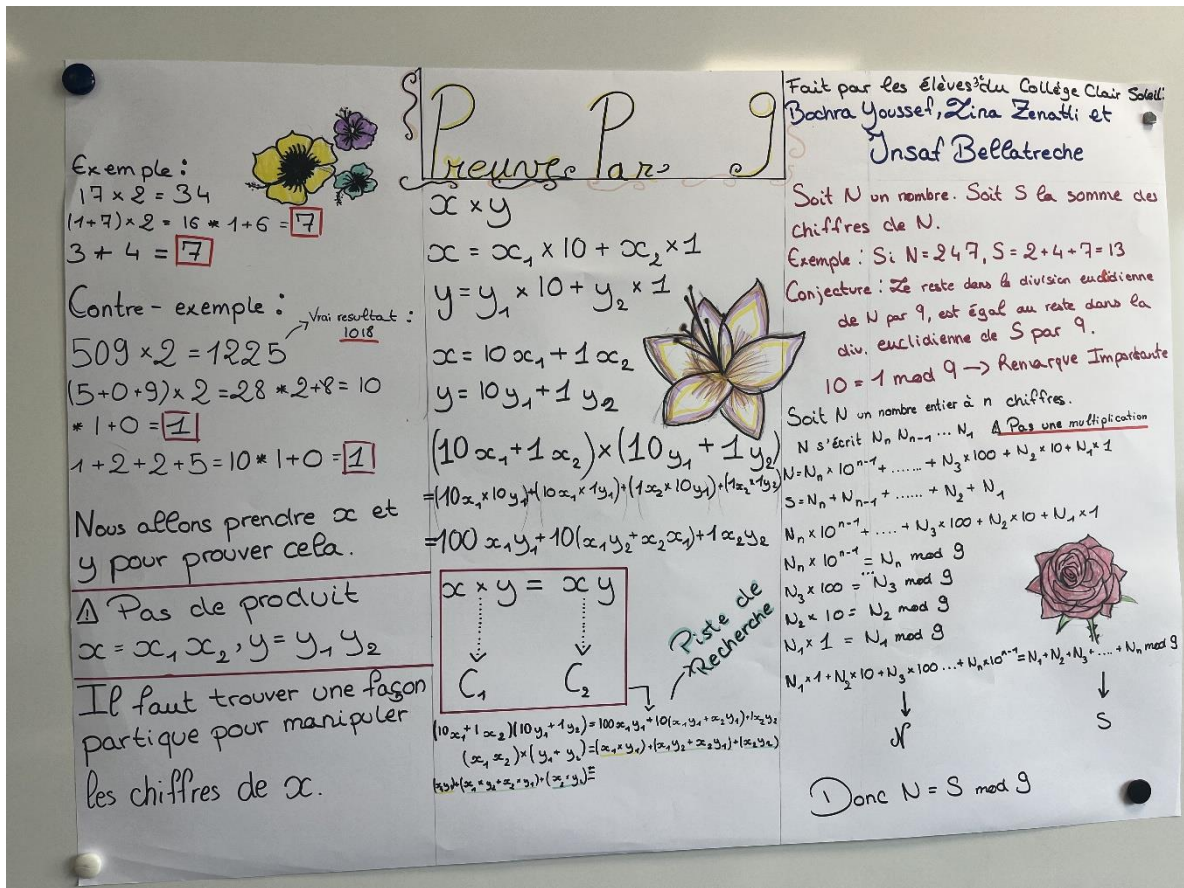 Exemple :
17 × 2 = 34
(1+7) × 2 = 16 * 1+6 = 7
3 + 4 = 7
Contre-exemple :
Vrai resultat :
1018
509 × 2 = 1225
(5+0+9) × 2 = 28 * 2+8 = 10
* 1+0 = 1
1+2+2+5 = 10 * 1+0 = 1
Nous allons prendre x et
y pour prouver cela.
⚠ Pas de produit
x = x₁ x₂, y = y₁ y₂
Il faut trouver une façon
partique pour manipuler
les chiffres de x.
Preuve Par 9
x × y
x = x₁ × 10 + x₂ × 1
y = y₁ × 10 + y₂ × 1
x = 10x₁ + 1x₂
y = 10y₁ + 1y₂
(10x₁ + 1x₂) × (10y₁ + 1y₂)
=(10x₁×10y₁)+(10x₁×1y₁)+(1x₂×10y₁)+(1x₂×1y₂)
=100x₁y₁+10(x₁y₂+x₂x₁)+1x₂y₂
x × y = xy
C₁ C₂
Piste de
Recherche
(10x₁+1x₂)(10y₁+1y₂)=100x₁y₁+10(x₁y₁+x₂y₁)+1x₂y₂
(x₁x₂)×(y₁+y₂)=(x₁×y₁)+(x₁y₂+x₂y₁)+(x₂y₂)
Fait par les élèves 3e du Collège Clair Soleil:
Bochra Youssef, Lina Zenatti et
Insaf Bellatreche
Soit N un nombre. Soit S la somme des
chiffres de N.
Exemple : Si N=247, S=2+4+7=13
Conjecture : Le reste dans la division euclidienne
de N par 9, est égal au reste dans la
div. euclidienne de S par 9.
10 = 1 mod 9 → Remarque Importante
Soit N un nombre entier à n chiffres.
N s'écrit Nₙ Nₙ₋₁ ... N₁ ⚠ Pas une multiplication
N=Nₙ×10ⁿ⁻¹+.......+N₃×100+N₂×10+N₁×1
S=Nₙ+Nₙ₋₁+......+N₂+N₁
Nₙ×10ⁿ⁻¹+....+N₃×100+N₂×10+N₁×1
Nₙ×10ⁿ⁻¹=Nₙ mod 9
...
N₃×100=N₃ mod 9
N₂×10=N₂ mod 9
N₁×1=N₁ mod 9
N₁×1+N₂×10+N₃×100...+Nₙ×10ⁿ⁻¹=N₁+N₂+N₃+....+Nₙ mod 9
N S
Donc N = S mod 9